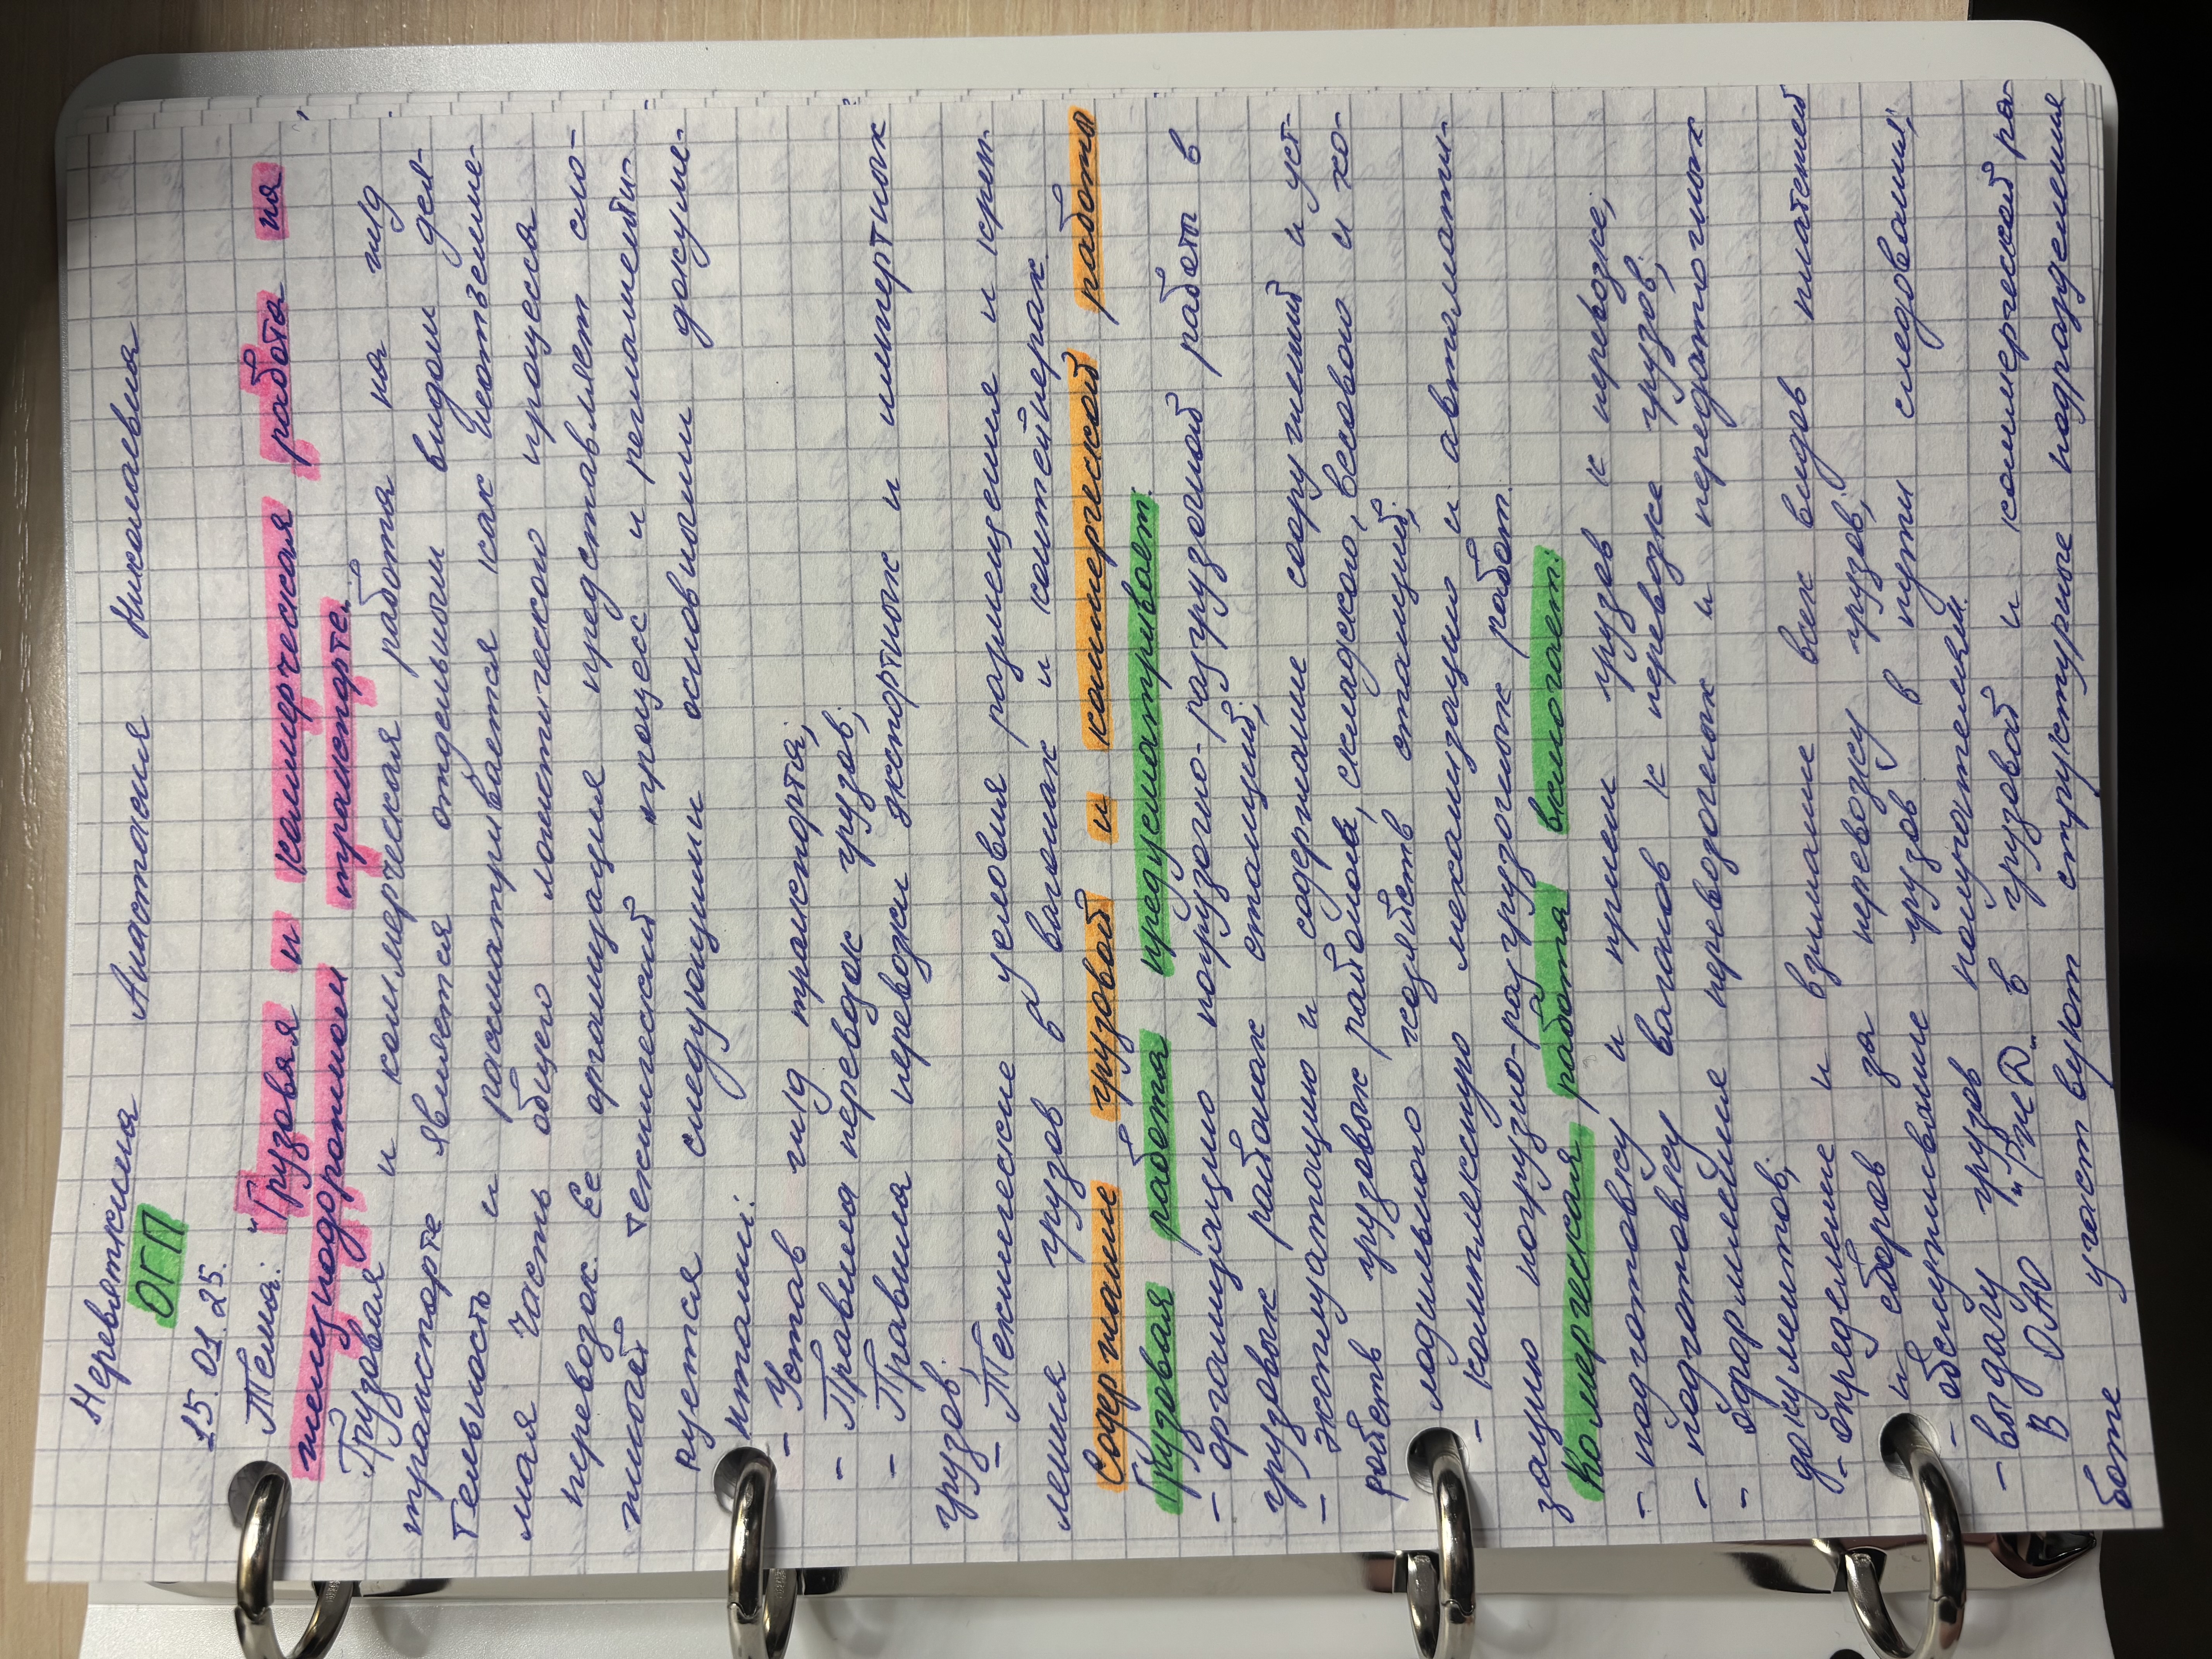 Неревяткина Анастасия Николаевна
ОГП
15.01.25.
Тема: "Грузовая и коммерческая работа на
железнодорожном транспорте."
Грузовая и коммерческая работа на ж/д
транспорте является отдельным видом дея-
тельность и рассматривается как неотъемле-
мая часть общего логистического процесса
перевозок. Ее организация представляет сло-
жной технический процесс и регламенти-
руется следующими основными докуме-
нтами:
- Устав ж/д транспорта;
- Правила перевозок грузов;
- Правила перевозки экспортных и импертных
грузов;
- Технические условия размещения и креп-
ления грузов в вагонах и контейнерах
Содержание грузовой и коммерческой работы
Грузовая работа предусматривает:
- организацию погрузочно-разгрузочной работы в
грузовых районах станций;
- эксплуатацию и содержание сооружений и уст-
ройств грузовых районов, складского, весового и хо-
лодильного хозяйств станций;
- комплексную механизацию и автоматии-
зацию погрузно-разгрузочных работ.
Коммерческая работа включает:
- подготовку и прием грузов к перевозке;
- подготовку вагонов к перевозке грузов;
- оформление перевозочных и передаточных
документов;
- определение и взимание всех видов платежей
и сборов за перевозку грузов;
- обслуживание грузов в пути следования;
- выдачу грузов получателям.
В ОАО "РЖД" в грузовой и коммерческой ра-
боте участвуют структурные подразделения